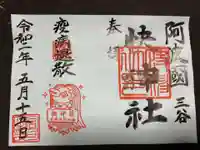 阿波國
三谷
神社
奉拝
疫病退散
令和二年五月十五日